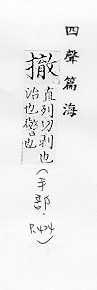 四聲篇海
撤
直列切剥也
治也警也
(手部.
P.424)